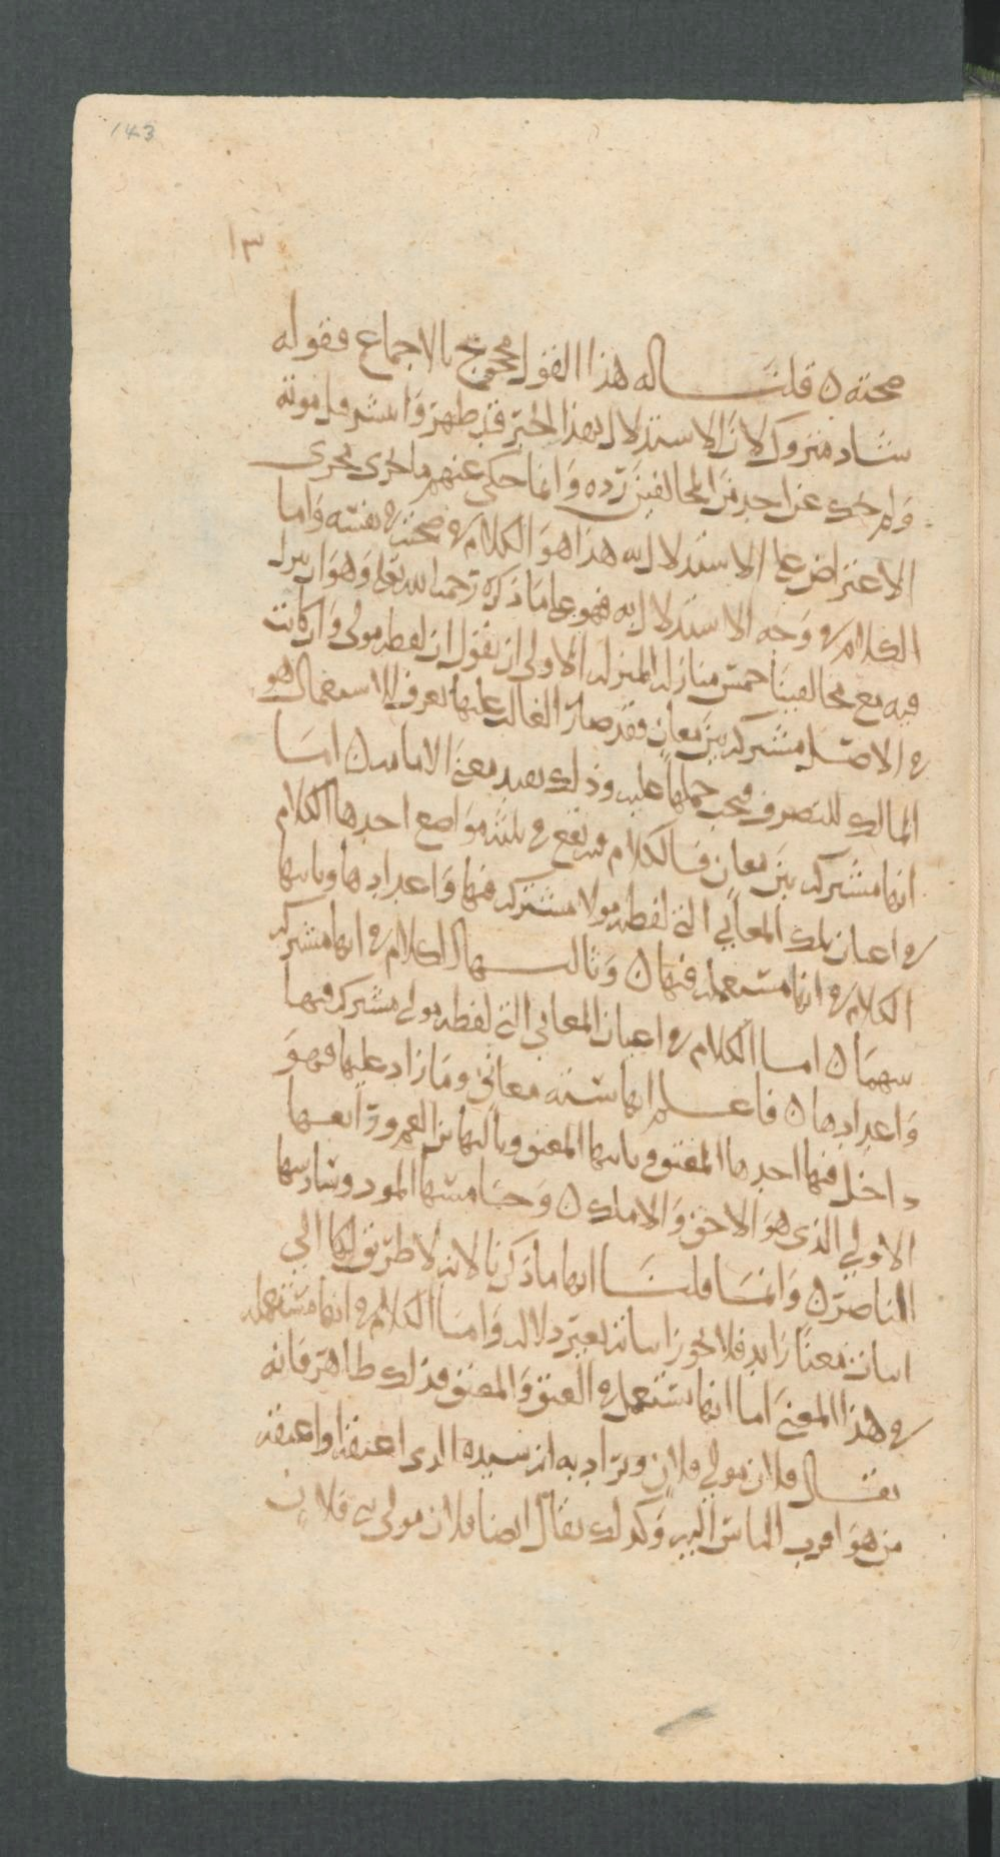 143
١٣
صحته ن قلنا له هذا القول محجوج بالاجماع فقوله
شاد متروك لان الاستدلال بهذا الخبر قد ظهر وانتشر قبل موته
ولم يحك عن احد من المخالفين رده وانما حكي عنهم ما جرى مجرى
الاعتراض على الاستدلال به هذا هو الكلام في صحته في نفسه واما
الكلام في وجه الاستدلال به فهو على ما ذكره رحمه الله تعالى وهو ان ننزل
فيه مع مخالفينا خمس منازل المنزلة الاولى ان نقول ان لفظه مولى وان كانت
في الاصل مشتركه بين معان فقد صار الغالب عليها بعرف الاستعمال هو
المالك للتصرف فيجب حملها عليه وذلك يفيد معنى الامامة ن اما
انها مشتركه بين معان فالكلام فيه يقع في ثلثه مواضع احدها الكلام
في اعيان تلك المعاني التي لفظه مولا مشتركه فيها واعدادها وثانيها
الكلام في انها مستعمله فيها ن وثالثها الكلام في انها مشتركه
بينها ن اما الكلام في اعيان المعاني التي لفظه مولى مشتركه فيها
واعدادها ن فاعلم انها سته معاني وما زاد عليها فهو
داخل فيها احدها المعتق وثانيها المعتق وثالثها بن العم ورابعها
الاولي الذي هو الاحق والاملك ن وخامسها المود وسادسها
الناصر ن وانما قلنا انها ما ذكرنا لانه لا طريق لنا الي
اثبات معنا زايد فلا يجوز اثباته بغير دلاله واما الكلام في انها مستعمله
في هذا المعنى اما انها تستعمل في العتق والمعتق فذلك ظاهر فانه
يقال فلان مولي فلان ويراد به انه سيده الذي اعتقه او اعتقه
من هو اقرب الناس اليه وكذلك يقال ايضا فلان مولى بني فلان